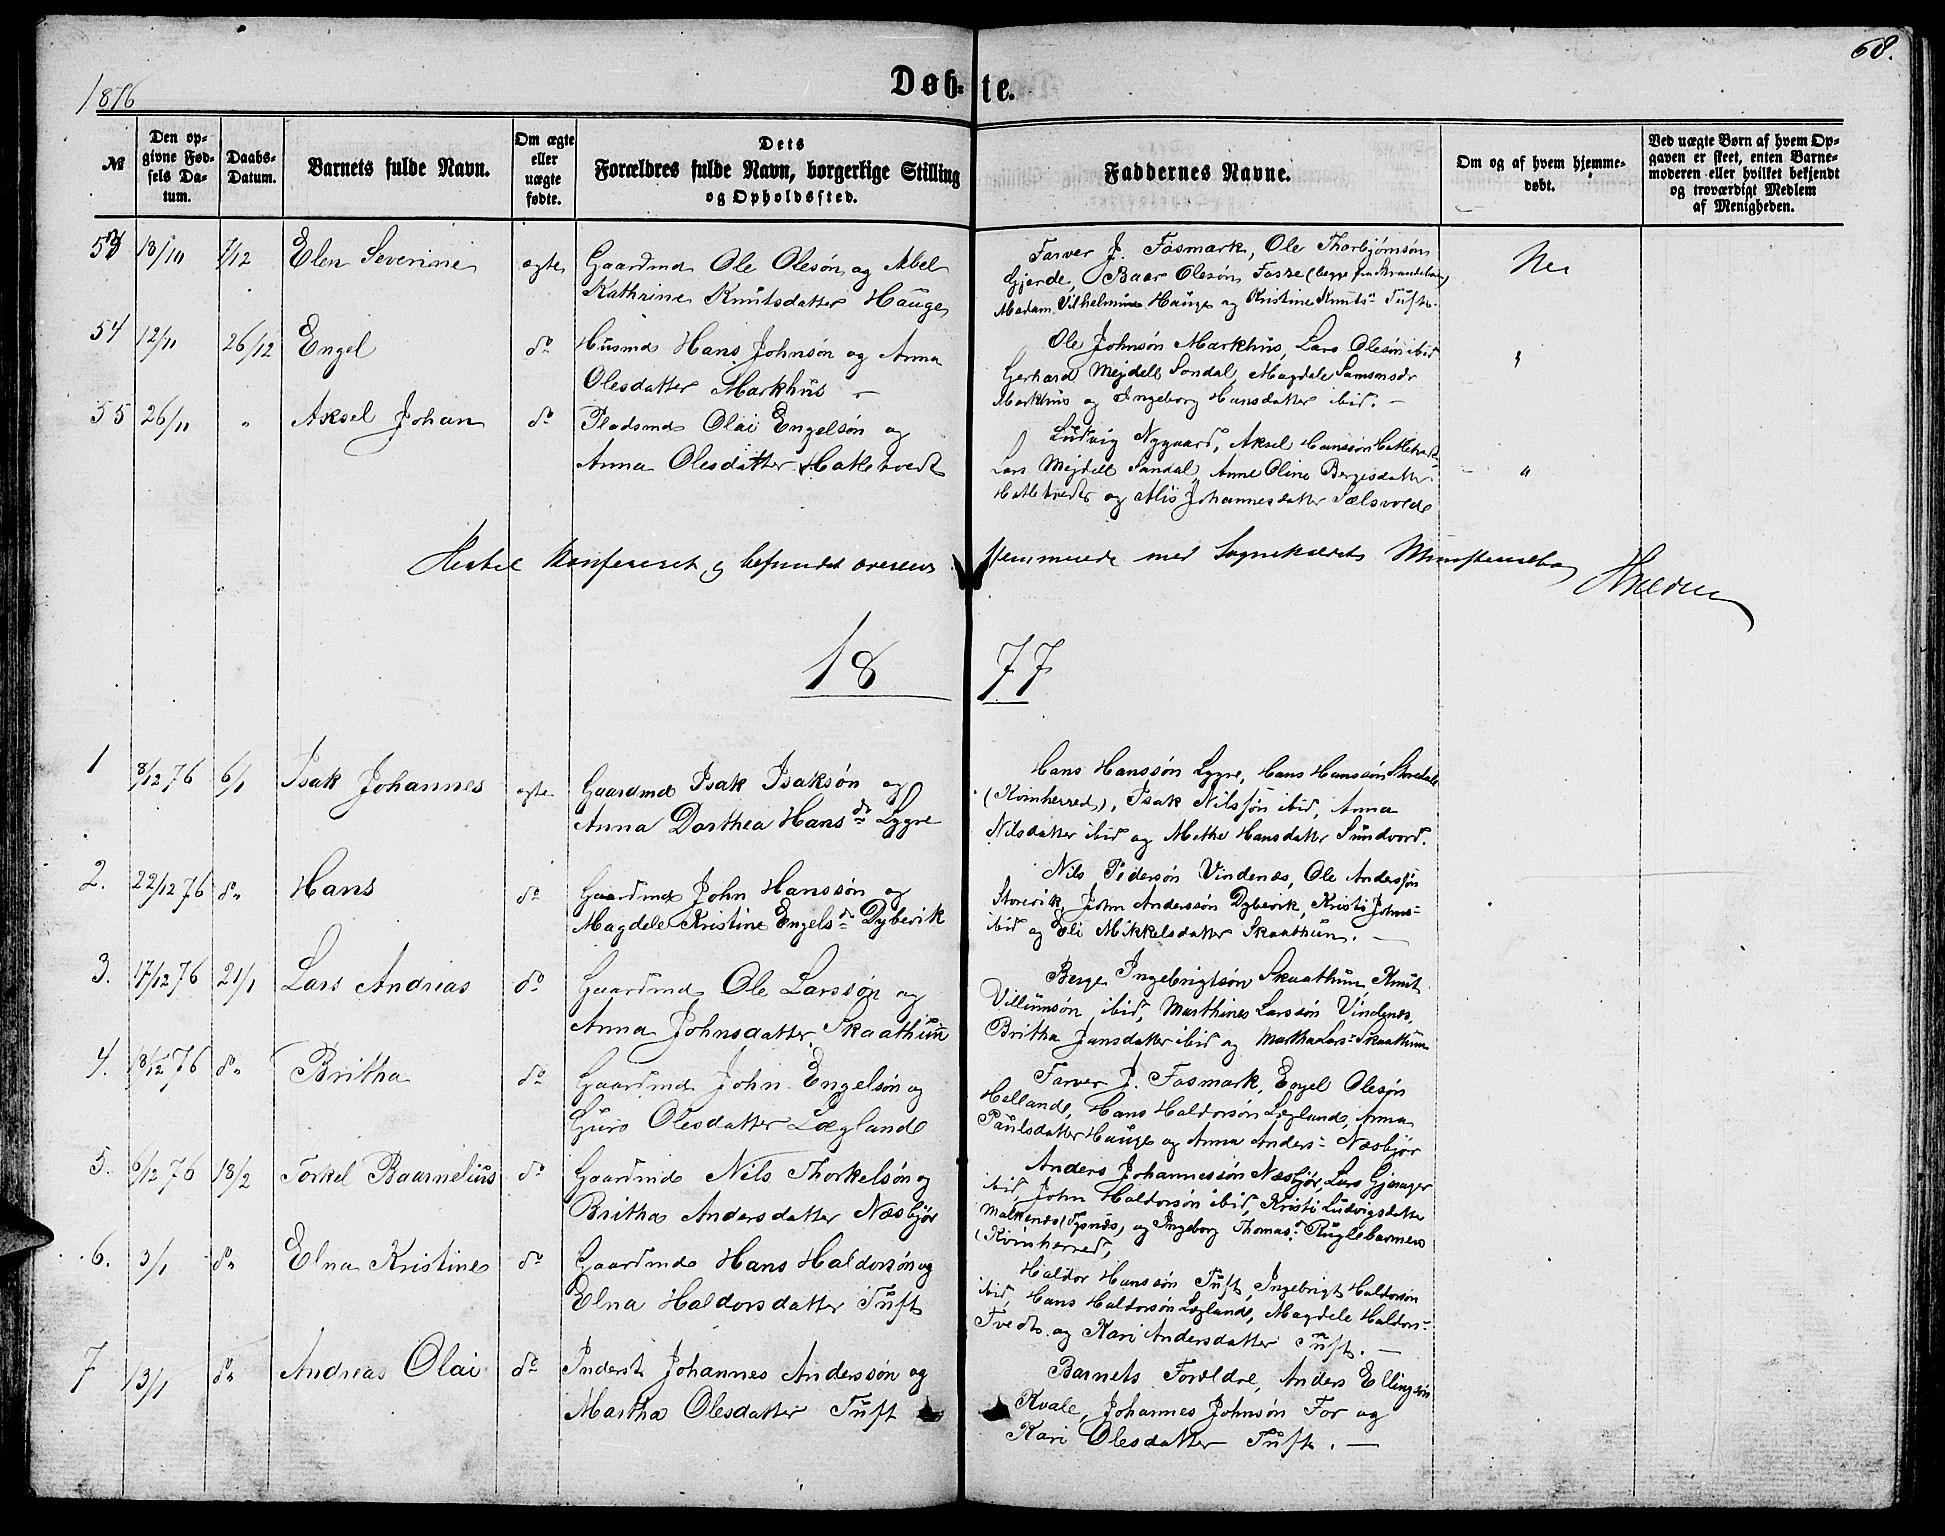 68.
1876
Døbte.
№
Den op-
givne Fød-
sels Da-
tum.
Daabs-
Datum.
Barnets fulde Navn.
Om ægte
eller
uægte
fødte.
Dets
Forældres fulde Navn, borgerlige Stilling
og Opholdssted.
Faddernes Navne.
Om og af hvem hjemme-
døbt.
Ved uægte Børn af hvem Op-
gaven er skeet, enten Barne-
moderen eller hvilket bekjendt
og troværdigt Medlem
af Menigheden.
53 18/10 7/12 Elen Severine ægte Gaardmd Ole Olesøn og Abel
Kathrine Knutsdatter Hauge
Farver J. Fosmark, Ole Thorbjørnsøn
Gjerde, Baar Olesøn Fosse (begge fra Strandebarm)
Madam Vilhelmine Hauge og Kristine Knuts- Tuft.
Nei
54 12/11 26/12 Engel do Husmd Hans Johnsøn og Anna
Olesdatter Markhus -
Ole Johnsøn Markhus, Lars Olesøn ibid
Gerhard Mejdell Sondal, Magdale Samsonsdr
Markhus og Ingeborg Hansdatter ibid. -
"
55 26/11 " Aksel Johan do Pladsmd Olai Engelsøn og
Anna Olesdatter Hakletvedt
Ludvig Nygaard, Aksel Hanssøn
Lars Mejdell Sandal, Anne Oline Bergesdatter
og Alis Johannesdatter Sælsvold
"
Hertil konfereret og befundet overens stemmende med Sognekaldets Ministerialbog
1877
1 8/12 76 6/1 Isak Johannes ægte Gaardmd Isak Isaksøn og
Anna Dorthea Hansdr Lygre
Hans Hanssøn Lygre, Hans Hanssøn
(Kvinherred), Isak Nilssøn ibid, Anna
Nilsdatter ibid og Methe Hansdatter Sundvord.
2. 22/12 76 do Hans do Gaardmd John Hanssøn og
Magdele Kristine Engelsdr Dybevik
Nils Pedersøn Vindenes, Ole Anderssøn
Storevik, John Anderssøn Dybevik, Kristi Johns-
ibid og Eli Mikkelsdatter Skaathun. -
3. 17/12 76 21/1 Lars Andreas do Gaardmd Ole Larssøn og
Anna Johnsdatter Skaathun
Berge Ingebrigtsøn Skaathun, Knut
Villumsøn ibid, Marthines Larssøn Vindenes,
Britha Jansdatter ibid og Martha Lars- Skaathun
4. 18/12 76 do Britha do Gaardmd John Engelsøn og
Guro Olesdatter Læglande
Farver J. Fosmark, Engel Olesøn
Hellande, Hans Haldorsøn Læglande, Anna
Paulsdatter Hauge og Anna Anders- Næsbjør
5. 6/12 76 18/2 Torkel Baarnelius do Gaardmd Nils Thorkelsøn og
Britha Andersdatter Næsbjør
Anders Johannessøn Næsbjør, Lars Gjerager
ibid, John Haldorsøn ibid, Kristi Ludvigsdatter
Malkenes (Tysnæs) og Ingeborg Thomas-
(Kvinherred)
6. 3/1 do Elna Kristine do Gaardmd Hans Haldorsøn og
Elna Haldorsdatter Tuft
Haldor Hanssøn Tuft, Ingebrigt Haldorsøn
ibid, Hans Haldorsøn Læglande, Magdele Haldors-
Tvedt og Kari Andersdatter Tuft. -
7 13/1 do Andreas Olai do Inderst Johannes Anderssøn og
Martha Olesdatter Tuft
Barnets Forældre, Anders Ellingsøn
Kvale, Johannes Johnsøn For og
Kari Olesdatter Tuft. -